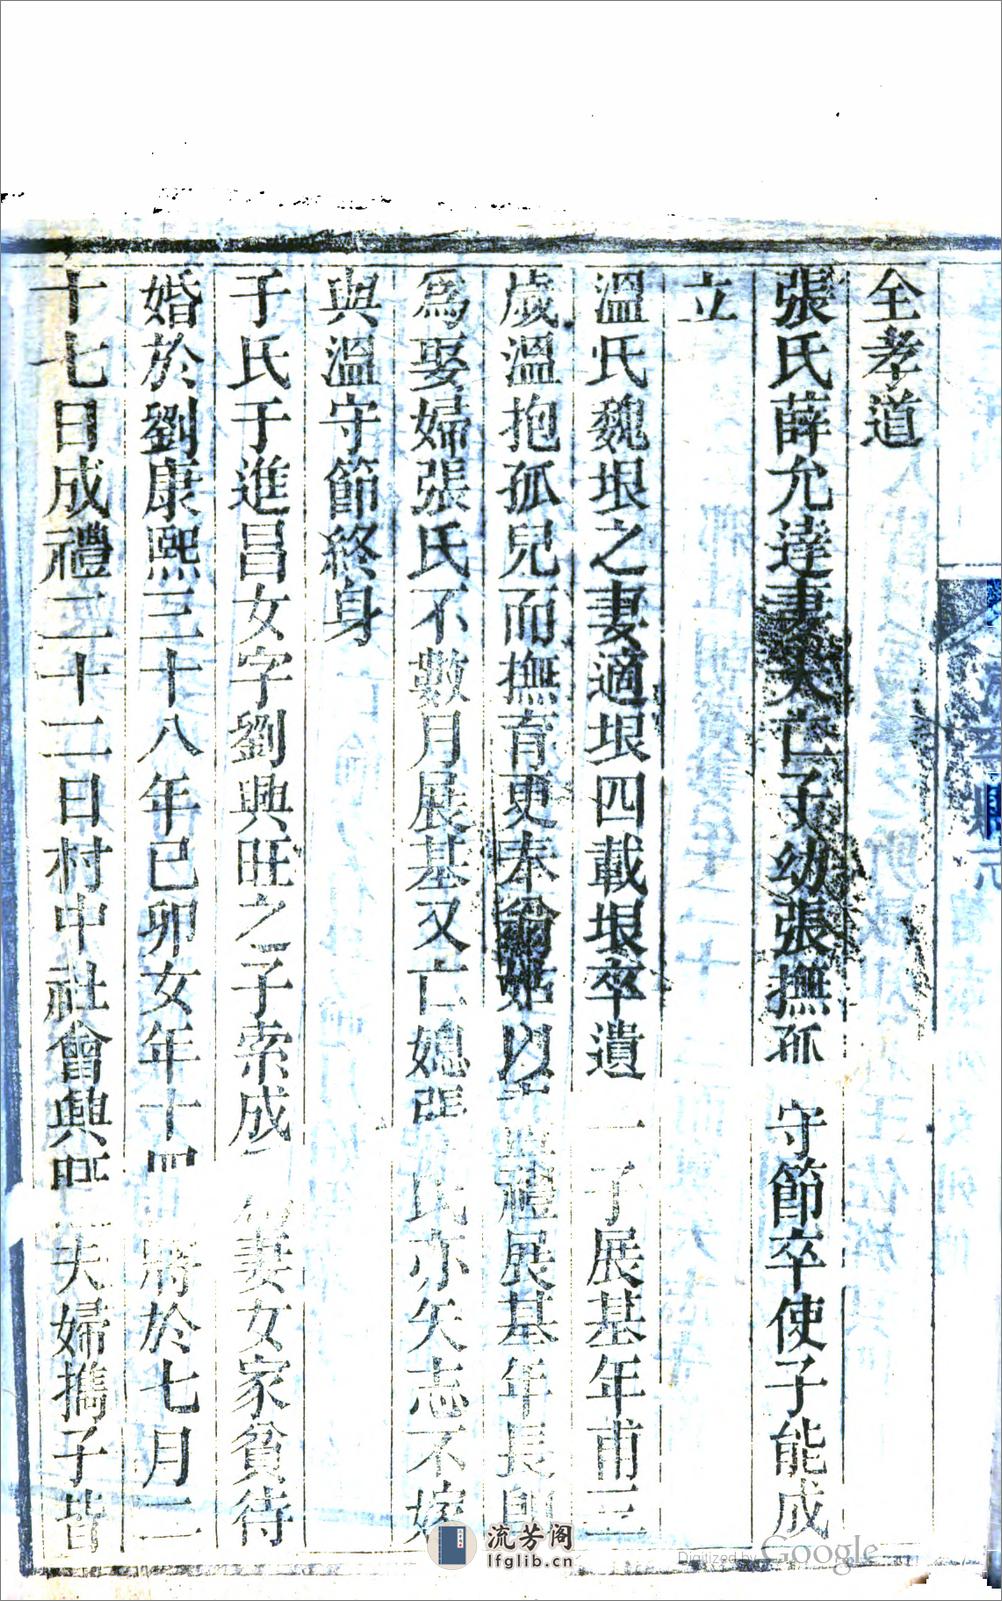 全孝道
張氏薛允達妻夫亡子幼張撫孤守節卒使子能成
立
溫氏魏垠之妻適垠四載垠卒遺一子展基年甫三
歲溫抱孤兒而撫育更奉翁姑以禮展基年長卽
爲娶婦張氏不數月展基又亡媳張氏亦矢志不嫁
與溫守節終身
于氏于進昌女字劉興旺之子索成爲妻女家貧待
婚於劉康熙三十八年己卯女年十四將於七月二
十七日成禮二十二日村中社會興旺夫婦攜子皆
流芳阁
lfglib.cn
Digitized by Google